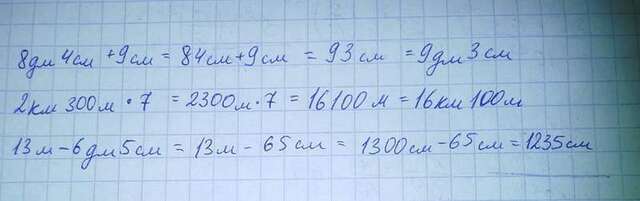 8дм 4см + 9см = 84см + 9см = 93см = 9дм 3см
2км 300м • 7 = 2300м • 7 = 16100м = 16км 100м
13м - 6дм 5см = 13м - 65см = 1300см - 65см = 1235см